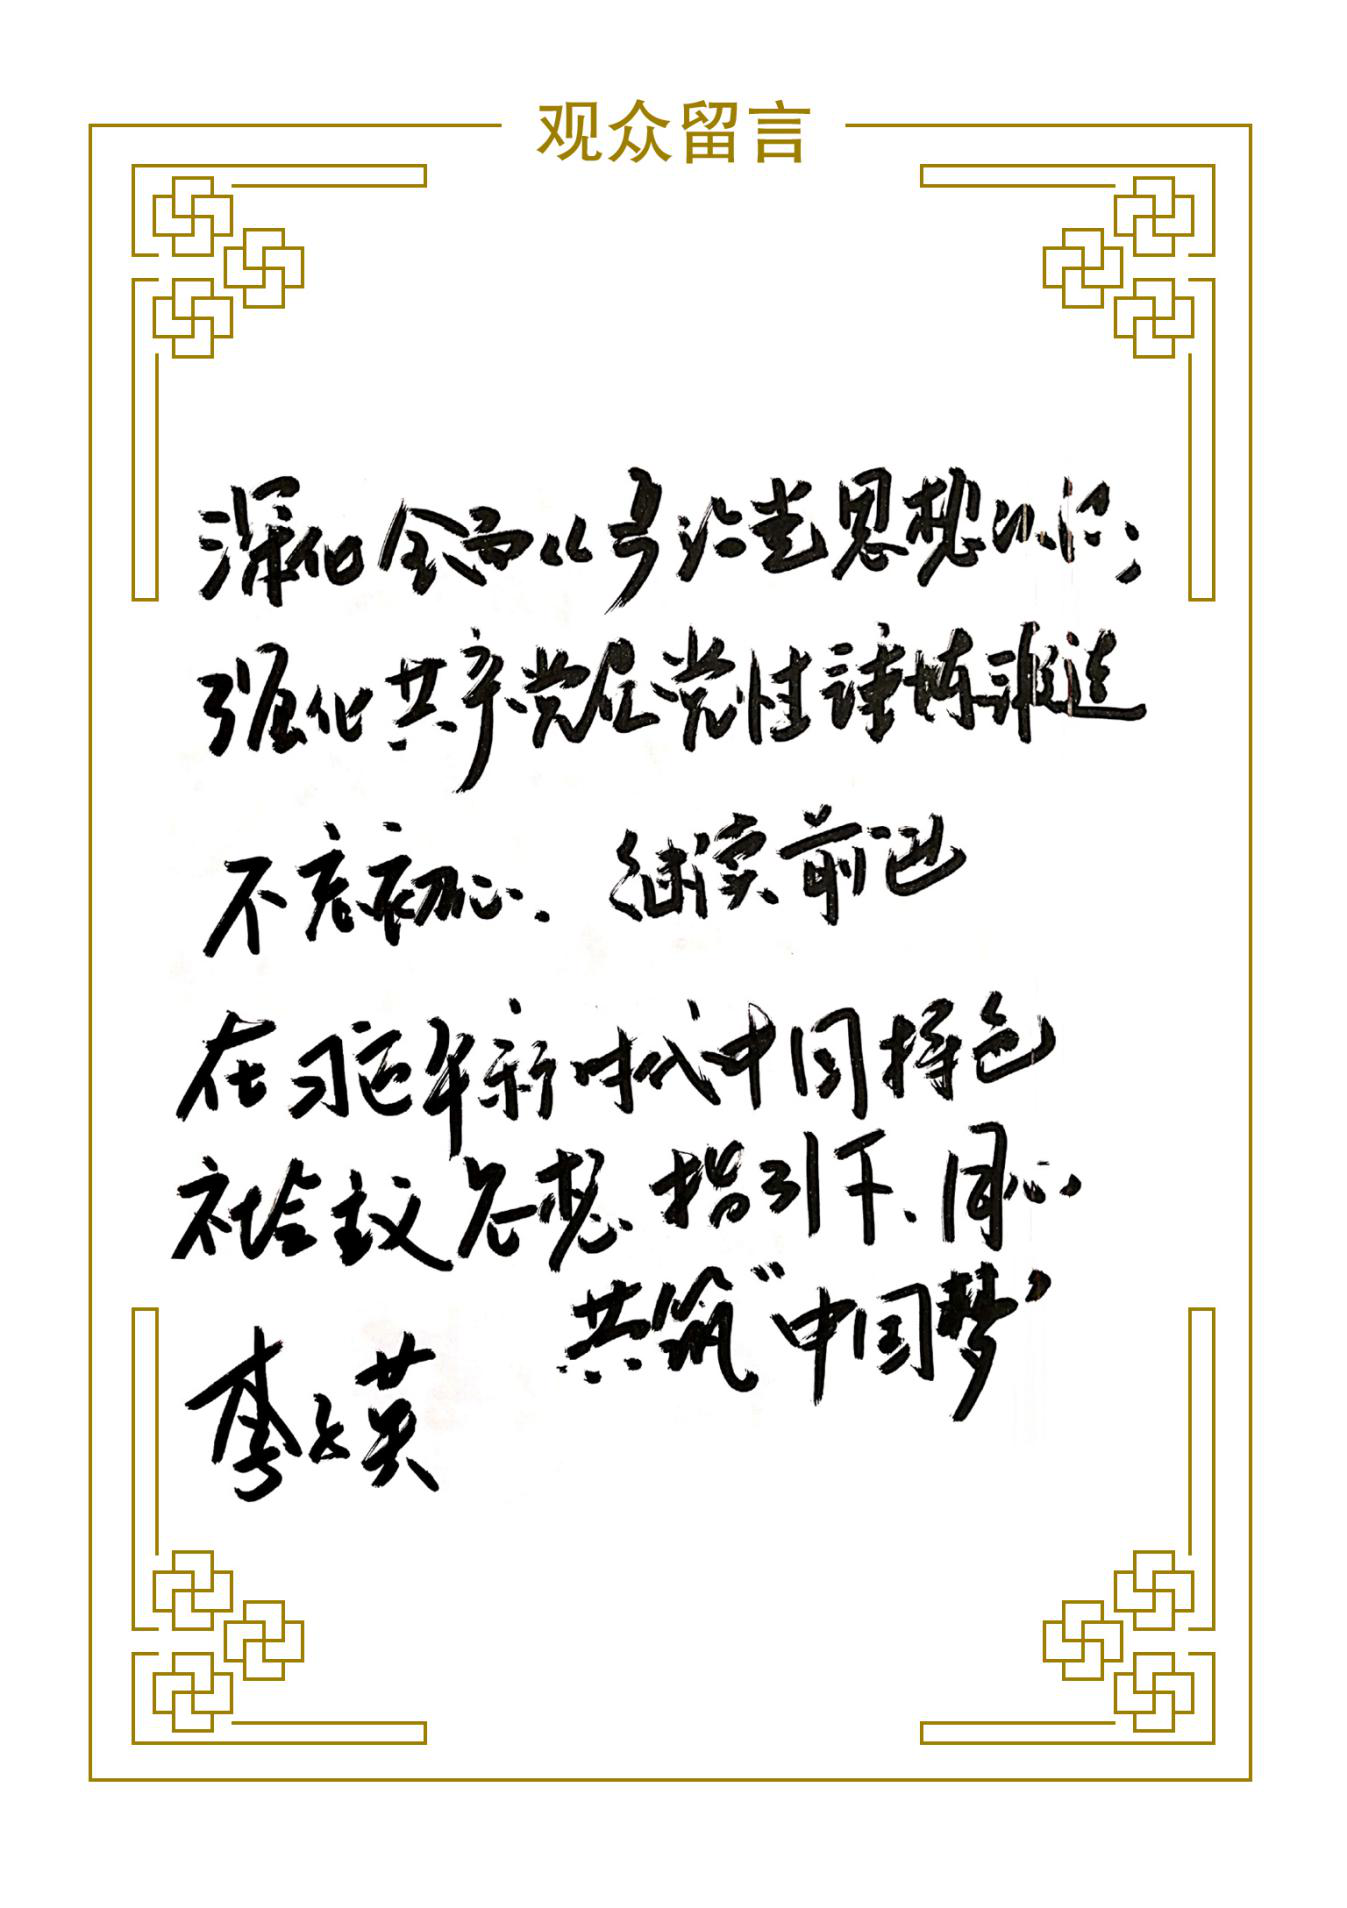 观众留言
深化全面从严治党思想认识；
强化共产党员党性锤炼锻造
不忘初心、继续前进
在习近平新时代中国特色
社会主义思想指引下、同心
共筑“中国梦”
李英